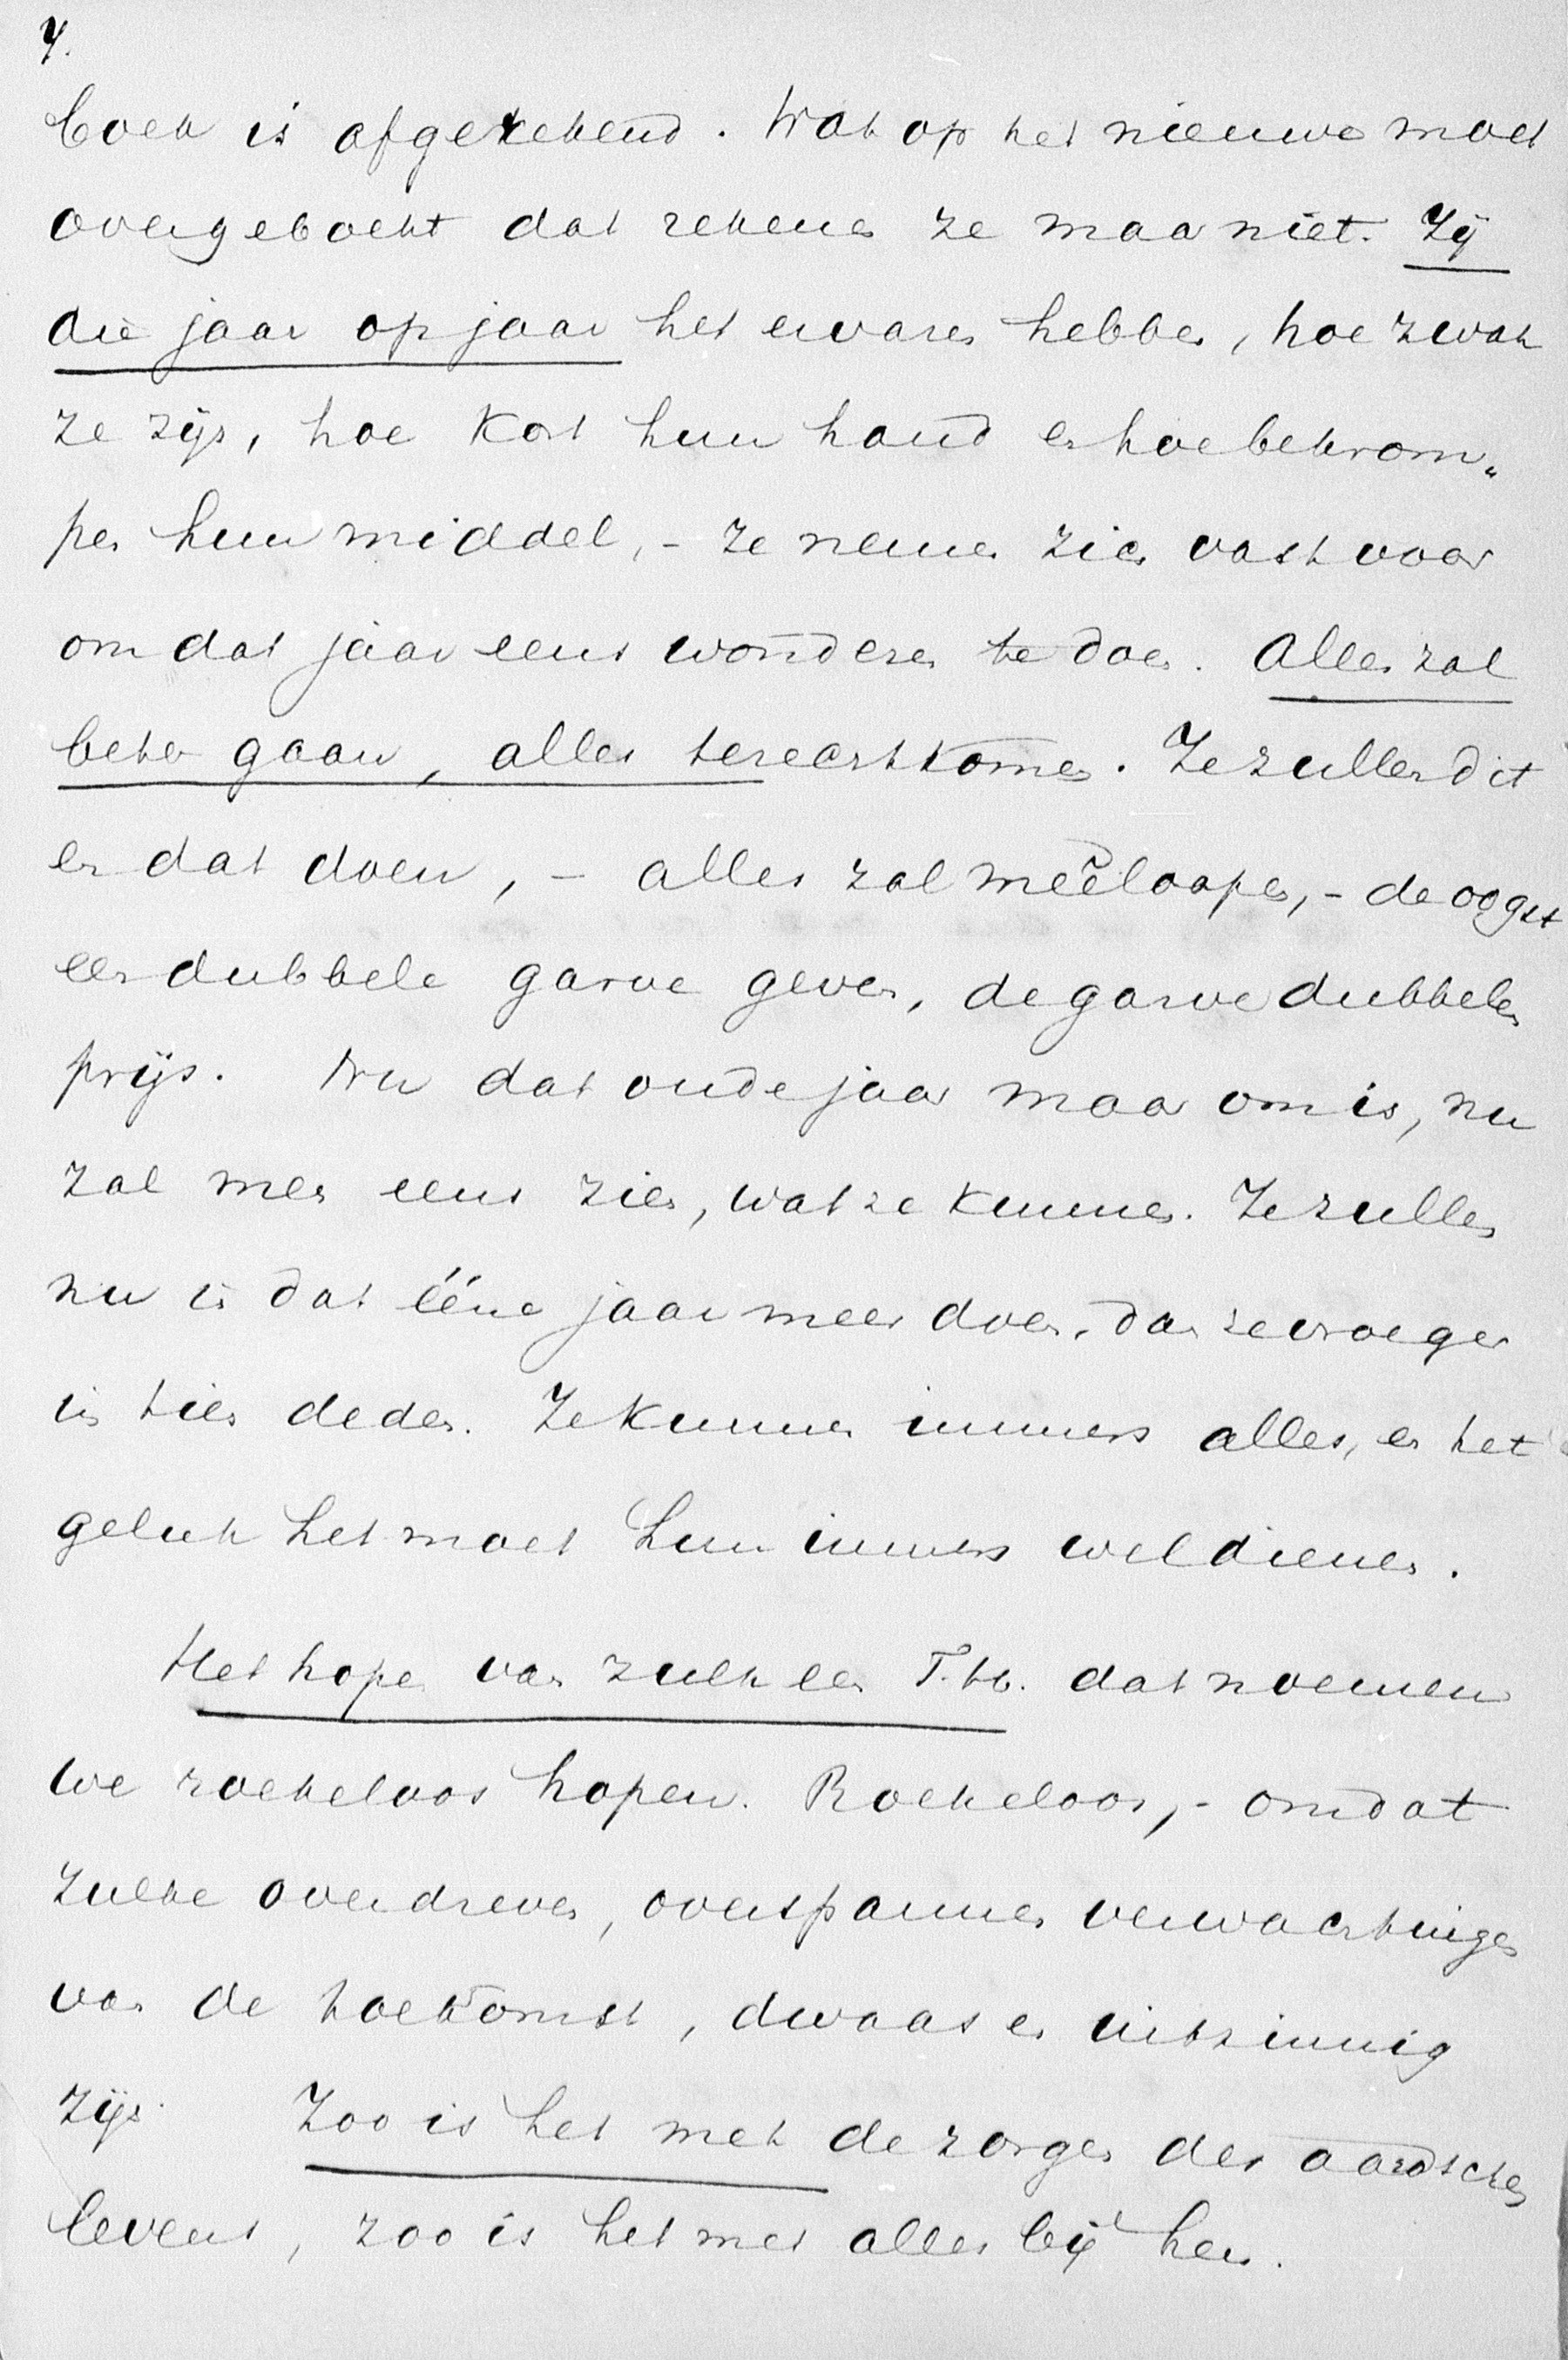 4.
boek is afgerekend. Wat op het nieuwe moet
overgeboekt dat rekenen ze maar niet. Zij
die jaar op jaar het ervaren hebben, hoe zwak
ze zijn, hoe kort hun hand en hoe bekrom„
pen hun middel, - ze nemen zich vast voor
om dat jaar eens wonderen te doen. Alles zal
beter gaan, alles terechtkomen. Ze zullen dit
en dat doen, - alles zal meêloopen, - de oogst
een dubbele garve geven, de garve dubbelen
prijs. Nu dat oude jaar maar om is, nu
zal men eens zien, wat ze kunnen. Ze zullen
nu in dat ééne jaar meer doen, dan ze vroeger
in tien deden. Ze kunnen immers alles, en het
geluk het moet hun immers wel dienen.
Het hopen van zulk een T. H. dat noemen
we roekeloos hopen. Roekeloos, - omdat
zulke overdreven, overspannen verwachtingen
van de toekomst, dwaas en uitzinnig
zijn. Zoo is het met de zorgen des aardschen
levens, zoo is het met alles bij hen.